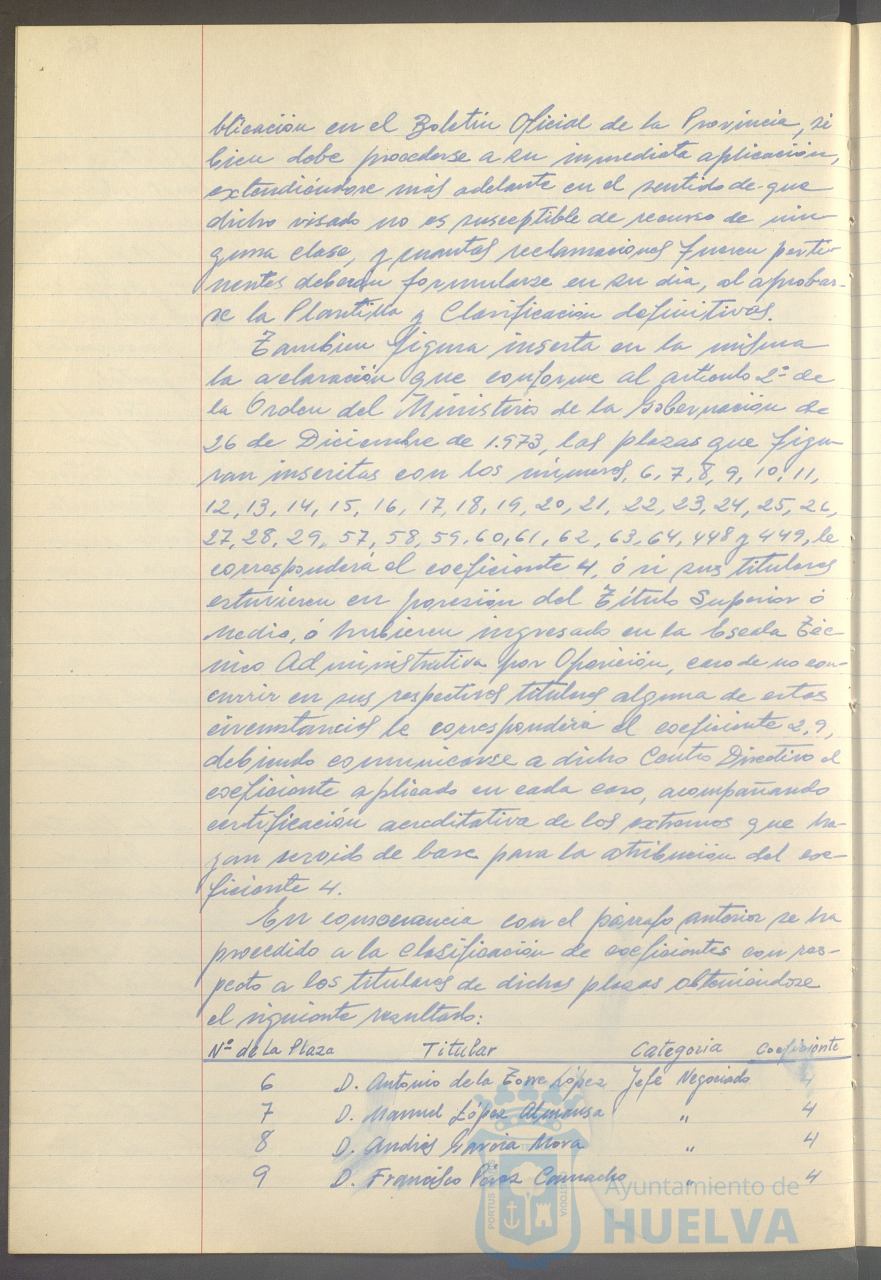 blicación en el Boletín Oficial de la Provincia, si
bien debe procederse a su inmediata aplicación,
extendiéndose más adelante en el sentido de que
dicho visado no es susceptible de recurso de nin-
guna clase, y cuantas reclamaciones fueren perti-
nentes deberán formularse en su día, al aprobar-
se la Plantilla y Clasificación definitivas.
Tambien figura inserta en la misma
la aclaración que conforme al artículo 2º de
la Orden del Ministerio de la Gobernación de
26 de Diciembre de 1.973, las plazas que figu-
ran inscritas con los números, 6, 7, 8, 9, 10, 11,
12, 13, 14, 15, 16, 17, 18, 19, 20, 21, 22, 23, 24, 25, 26,
27, 28, 29, 57, 58, 59, 60, 61, 62, 63, 64, 448 y 449, le
corresponderá el coeficiente 4, ó si sus titulares
estuvieren en posesión del Título Superior ó
Medio, ó hubieren ingresado en la Escala Téc-
nico Administrativa por Oposición, caso de no con-
currir en sus respectivos titulares alguna de estas
circunstancias le corresponderá el coeficiente 2,9,
debiendo comunicarse a dicho Centro Directivo el
coeficiente aplicado en cada caso, acompañando
certificación acreditativa de los extremos que ha-
yan servido de base para la atribución del coe-
ficiente 4.
En consonancia con el párrafo anterior se ha
procedido a la clasificación de coeficientes con res-
pecto a los titulares de dichas plazas obteniéndose
el siguiente resultado:
Nº de la Plaza Titular Categoria Coeficiente
6 D. Antonio de la Torre López Jefe Negociado 4
7 D. Manuel López Almansa " 4
8 D. Andrés García Mora " 4
9 D. Francisco Pérez Camacho " 4
PORTUS CUSTODIA
Ayuntamiento de
HUELVA